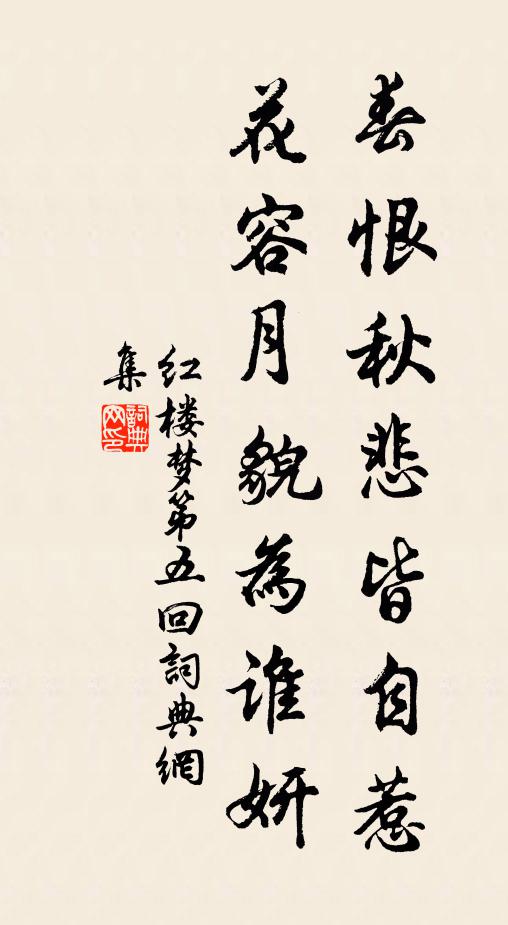 春恨秋悲皆自惹
花容月貌為谁妍
红楼梦第五回詞典網
集
詞典
网印